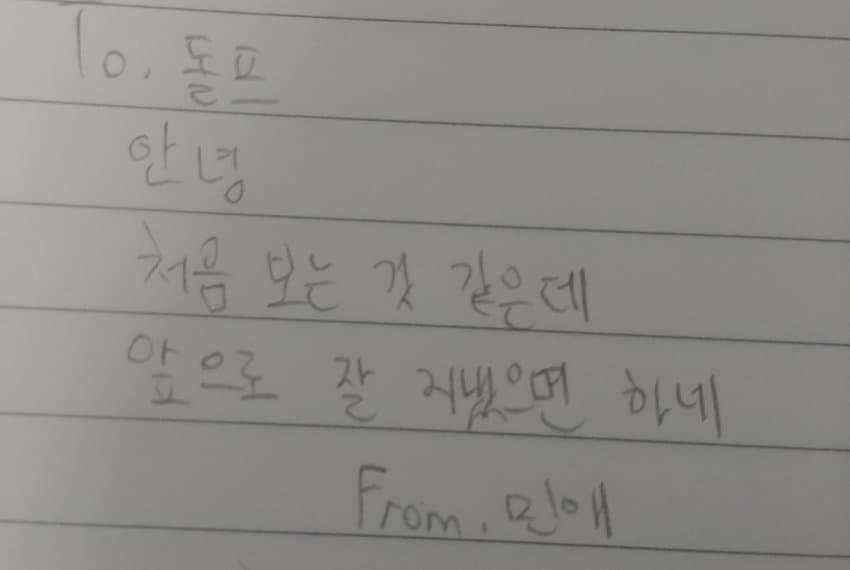 To. 돌프
안녕
처음 보는 것 같은데
앞으로 잘 지냈으면 하네
From. 민애